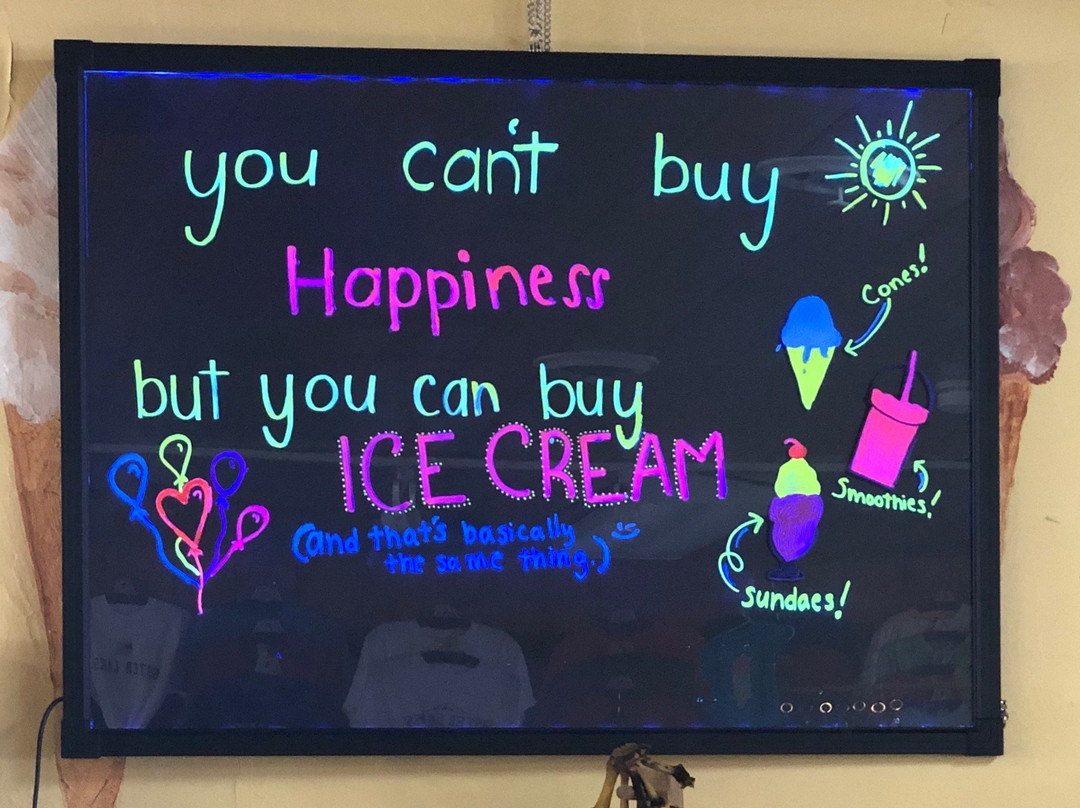 you can't buy
Happiness
but you can buy
ICE CREAM
(and that's basically
the same thing.)
Cones!
Smoothies!
Sundaes!